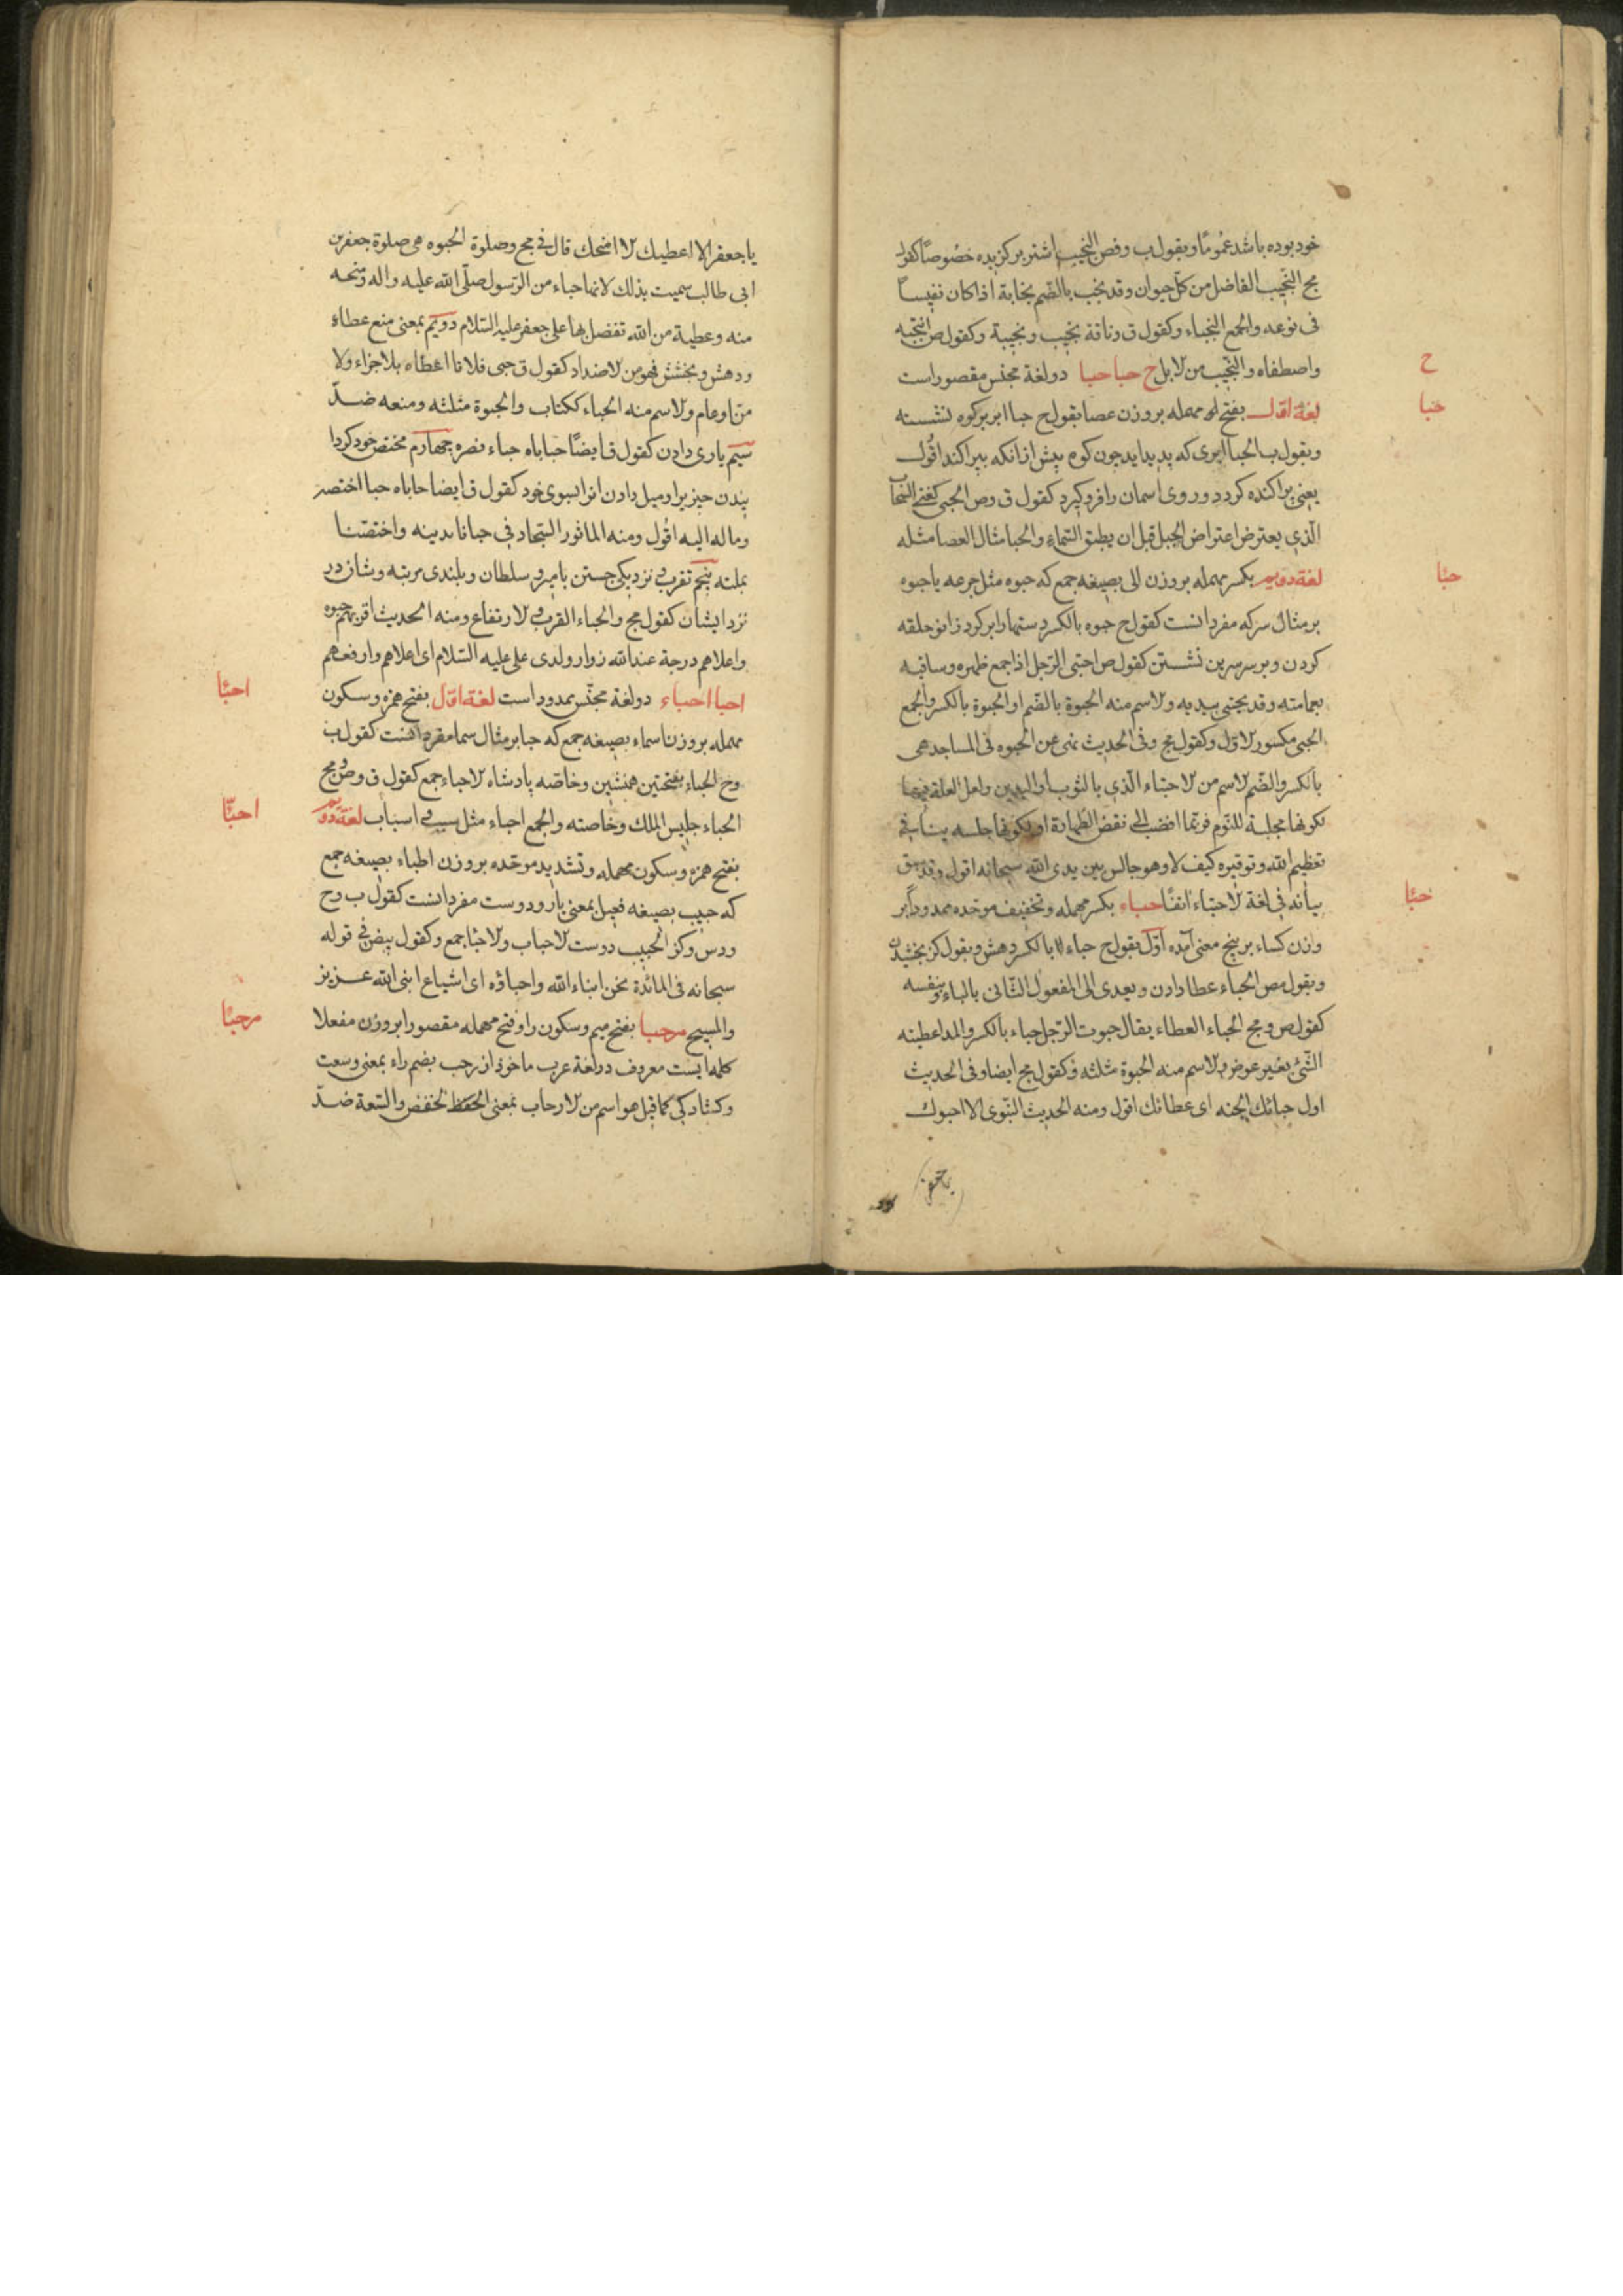 خود بوده باشد عمُومًا و بقول ب وفص النجيب اشتر بركزيده خصُوصًا كقول
مج النّجيب الفاضل من كلّ حيوان وقد نجُب بالضّم نجابة اذا كان نفيسًا
فى نوعه والجمع النجباء وكقول ق وناقة نجيب ونجيبة وكقول ص انتجبه
واصطفاه والنّجيب من الابل ح حبا حبا دو لغة مجنّس مقصور است
ح
لغة اوّل بفتح مهمله بر وزن عصا بقول ح حبا ابر بركوه نشسته
حبا
وبقول ب الحبا ابرى كه پديد ايد چون كوه پيش از انكه بپراكند اقُول
يعنى پراكنده كردد و روى اسمان را فرو كيرد كقول ق وص الحبى كغنى السّحاب
الّذى يعترض اعتراض الجبل قبل ان يطبق السّماء والحبا مثال العصا مثله
لغة دويم بكسر مهمله بر وزن الى بصيغه جمع كه حبوه مثل جرعه يا حبوه
حبًا
بر مثال سركه مفرد انست كقول ح حبوه بالكسر دستها را بر كرد زانو حلقه
كردن و بر سر سرين نشستن كقول ص احتبى الرّجل اذا جمع ظهره وساقيه
بعمامته وقد يحتبى بيديه والاسم منه الحبوة بالضّم او الحبوة بالكسر والجمع
الحبى مكسور الاوّل وكقول مج وفى الحديث نهى عن الحبوه فى المساجد هى
بالكسر والضّم الاسم من الاحتباء الّذى بالثوب او اليدين ولعل العلة فيها
لكونها مجلبة للنّوم فربّما افضت الى نقض الطّهارة او لكونها جلسه ينافى
تعظيم اللّه وتوقيره كيف لا وهو جالس بين يدى اللّه سبحانه اقول وقد سبق
بيانه فى لغة الاحتباء انفًا حباء بكسر مهمله وتخفيف موحّده ممدودًا بر
حبًا
وزن كساء بر پنج معنى آمده اوّل بقول ح حباء بالكسر دهش و بقول كز بخشيدن
وبقول مص الحباء عطا دادن ويعدى الى المفعول الثّانى بالباء وبنفسه
كقول ص و مج الحباء العطاء يقال حبوت الرّجل حباء بالكسر والمد اعطيته
الشّئ بغير عوض والاسم منه الحبوة مثلثه وكقول مج ايضا وفى الحديث
اول حبائك الجنه اى عطائك اقول ومنه الحديث النّبوى الا احبوك
يا جعفر
يا جعفر الا اعطيك الا امنحك قال فى مج وصلوة الحبوه هى صلوة جعفر بن
ابى طالب سميت بذلك لانها حباء من الرّسول صلّى اللّه عليه واله ومنحه
منه وعطية من اللّه تفضل بها على جعفر عليه السّلام دويّم بمعنى منع عطاء
و دهش و بخشش فهو من الاضداد كقول ق حبى فلانا اعطاه بلا جزاء ولا
منّ او عام والاسم منه الحباء ككتاب والحبوة مثلثه ومنعه ضدّ
سيّم يارى دادن كقول ق ايضًا حاباه حباء نصره چهارم مختص خود كردا
نيدن چيزيرا و ميل دادن انرا بسوى خود كقول ق ايضا حاباه حبا اختصر
وماله اليه اقُول ومنه الماثور السّجاد فى حبانا بدينه واختصّنا
بملته پنجم تقرّب و نزديكى جستن بامير و سلطان و بلندى مرتبه و شان در
نزد ايشان كقول مج والحباء القرب والارتفاع ومنه الحديث اقربهم حبوه
واعلاهم درجة عند اللّه زوار ولدى على عليه السّلام اى اعلاهم وارفعهم
احبا احباء دو لغة مجنّس ممدود است لغة اوّل بفتح همزه وسكون
احبًا
مهمله بر وزن اسماء بصيغه جمع كه حبا بر مثال سما مفرد انست كقول ب
وح الحباء بفتحتين همنشين و خاصّه پادشاه الاحباء جمع كقول ق وص و مج
الحباء جليس الملك وخاصته والجمع احباء مثل سبب و اسباب لغة دويم
احبّا
بفتح همزه وسكون مهمله وتشديد موحّده بر وزن اطباء بصيغه جمع
كه حبيب بصيغه فعيل بمعنى يار و دوست مفرد انست كقول ب وح
ودس وكز الحبيب دوست الاحباب والاحبّا جمع وكقول بيض فى قوله
سبحانه فى المائدة نحن ابناء اللّه واحباؤه اى اشياع ابنى اللّه عزيز
والمسيح مرحبا بفتح ميم وسكون را وفتح مهمله مقصورا بر وزن مفعلا
مرحبًا
كلمه ايست معروف در لغة عرب ماخوذ از رحب بضم راء بمعنى وسعت
و كشادكى كما قيل هو اسم من الارحاب بمعنى الحفظ الخفض والسّعة ضدّ